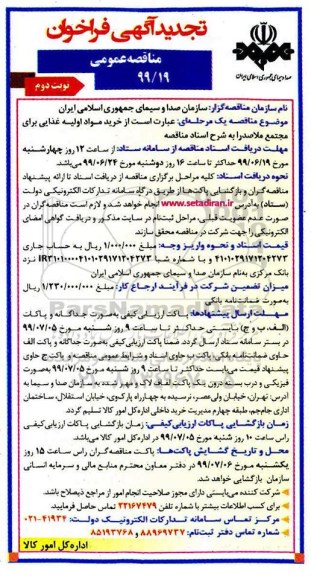 تجدید آگهی فراخوان
مناقصه عمومی
۹۹/۱۹
نوبت دوم
صدا و سیمای جمهوری اسلامی ایران
نام سازمان مناقصه‌گزار: سازمان صدا و سیمای جمهوری اسلامی ایران
موضوع مناقصه یک مرحله‌ای: عبارت است از خرید مواد اولیه غذایی برای
مجتمع ملاصدرا به شرح اسناد مناقصه
مهلت دریافت اسناد مناقصه از سامانه ستاد: از ساعت ۱۲ روز چهارشنبه
مورخ ۹۹/۰۶/۱۹ حداکثر تا ساعت ۱۶ روز دوشنبه مورخ ۹۹/۰۶/۲۴ می‌باشد.
نحوه دریافت اسناد: کلیه مراحل برگزاری مناقصه از دریافت اسناد تا ارائه پیشنهاد
مناقصه‌گران و بازگشایی پاکت‌ها از طریق درگاه سامانه تدارکات الکترونیکی دولت
(ستاد) به آدرس www.setadiran.ir انجام خواهد شد و لازم است مناقصه‌گران در
صورت عدم عضویت قبلی، مراحل ثبت‌نام در سایت مذکور و دریافت گواهی امضای
الکترونیکی را جهت شرکت در مناقصه محقق سازند.
قیمت اسناد و نحوه واریز وجه: مبلغ ۱/۰۰۰/۰۰۰ ریال به حساب جاری
نزد
بانک مرکزی به‌نام سازمان صدا و سیمای جمهوری اسلامی ایران
میزان تضمین شرکت در فرآیند ارجاع کار: مبلغ ۱/۲۳۰/۰۰۰/۰۰۰ ریال
به‌صورت ضمانتنامه بانکی
مهلت ارسال پیشنهادها: پاکت ارزیابی کیفی به‌صورت جداگانه و پاکات
(الف، ب و ج) بایستی حداکثر تا ساعت ۹ روز شنبه مورخ ۹۹/۰۷/۰۵
در بستر سامانه ستاد ارسال گردد. ضمناً پاکت ارزیابی کیفی به‌صورت جداگانه و پاکت الف
حاوی ضمانت‌نامه بانکی، پاکت ب حاوی اسناد و شرایط عمومی مناقصه و پاکت ج حاوی
پیشنهاد قیمت می‌بایست حداکثر تا ساعت ۹ روز شنبه مورخ ۹۹/۰۷/۰۵ به‌صورت
فیزیکی و درب بسته درون یک پاکت لفاف لاک و مهر شده به سازمان صدا و سیما به
آدرس: تهران، خیابان ولی‌عصر، نرسیده به چهارراه پارک‌وی، خیابان استقلال، ساختمان
اداری جام‌جم، طبقه چهارم مدیریت خرید داخلی اداره کل امور کالا تسلیم گردد.
زمان بازگشایی پاکات ارزیابی کیفی: زمان بازگشایی پاکات ارزیابی کیفی
راس ساعت ۱۰ روز شنبه مورخ ۹۹/۰۷/۰۵ در اداره کل امور کالا می‌باشد.
محل و تاریخ گشایش پاکت‌ها: پاکت مناقصه‌گران راس ساعت ۱۵ روز
یکشنبه مورخ ۹۹/۰۷/۰۶ در دفتر معاون محترم منابع مالی و سرمایه انسانی
سازمان بازگشایی خواهد شد.
شرکت کننده می‌بایستی دارای مجوز صلاحیت انجام امور از مراجع ذیصلاح باشد.
برای کسب اطلاعات بیشتر با شماره تلفن ۲۲۱۶۷۴۷۹ تماس حاصل فرمایید.
مرکز تماس سامانه تدارکات الکترونیک دولت: ۰۲۱-۴۱۹۳۴
شماره تماس دفتر ثبت‌نام: ۸۸۹۶۹۷۳۷ و ۸۵۱۹۳۷۶۸
اداره کل امور کالا